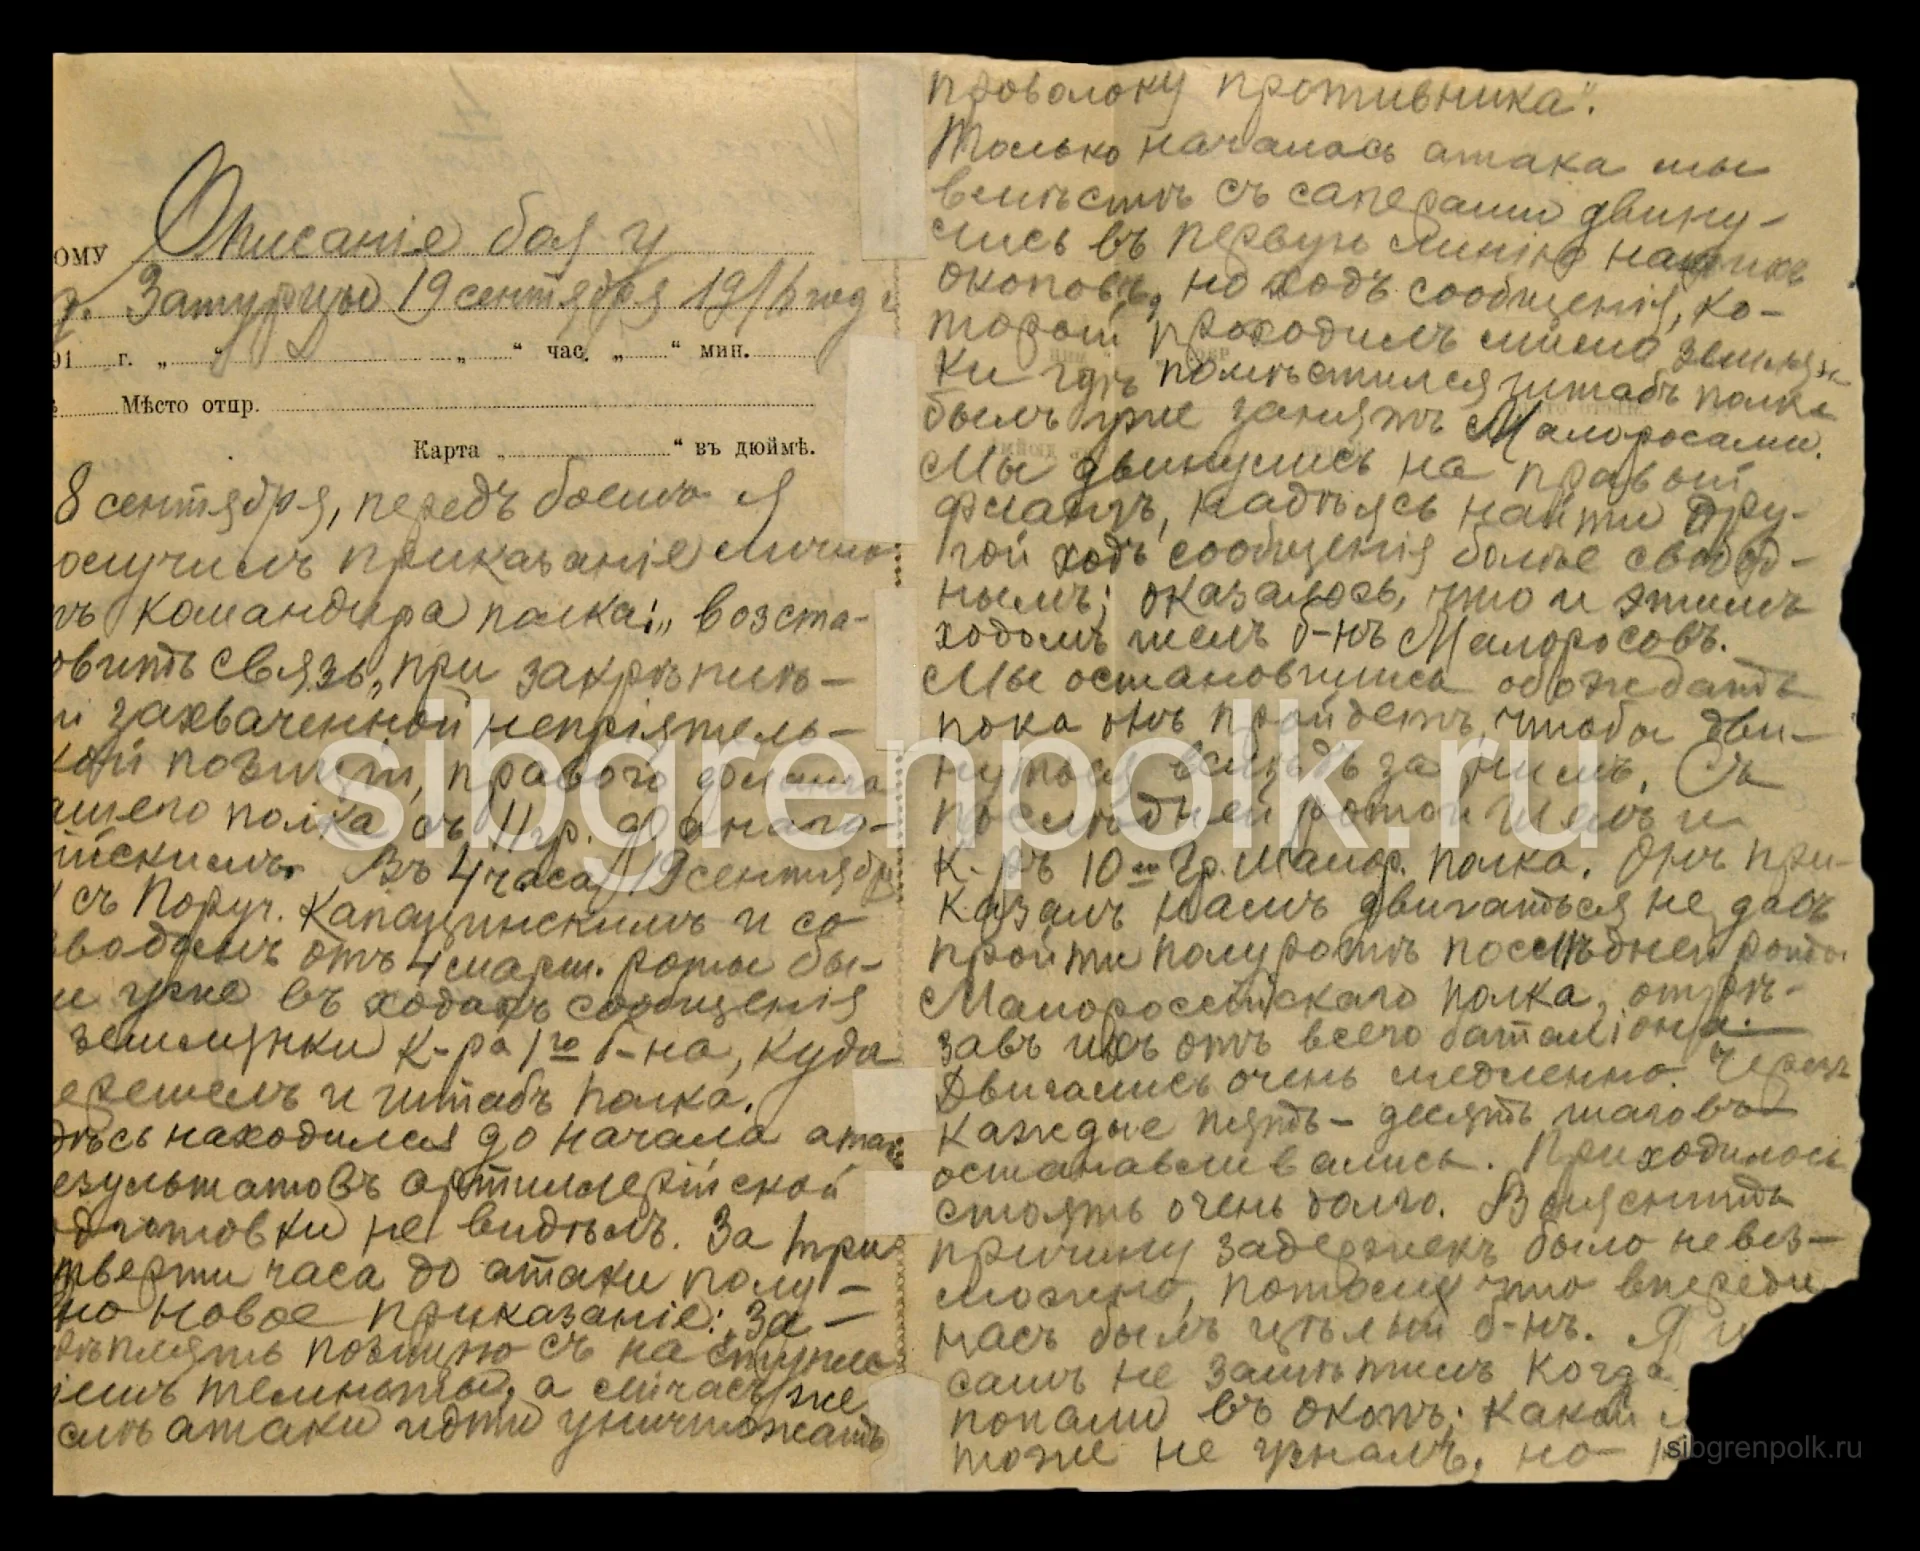 ОМУ Описаніе боя у
д. Затурцы 19 сентября 1916 года
91 г. „ “ час. „ “ мин.
Мѣсто отпр.
Карта „ “ въ дюймѣ.
8 сентября, передъ боемъ я
олучилъ приказаніе лично
тъ командира полка: „возста-
овить связь, при закрѣпле-
и захваченной непріятель-
кой позиціи, праваго фланга
ашего полка съ 11 гр. Фанаго-
ійскимъ. Въ 4 часа 19 сентября
съ Поруч. Капацинскимъ и со
взводомъ отъ 4 марш. роты бы-
и уже въ ходахъ сообщенія
землянки К-ра 1го б-на, куда
ерешелъ и штабъ полка.
дѣсь находился до начала атаки
езультатовъ артиллерійской
одготовки не видѣлъ. За три
тверти часа до атаки полу-
но новое приказаніе: „За-
рѣплять позицію съ наступле
іемъ темноты, а сейчасъ же
слѣ атаки идти уничтожать
проволоку противника“.
Только началась атака мы
вмѣстѣ съ саперами двину-
лись въ первую линію нашихъ
окоповъ, но ходъ сообщенія, ко-
торый проходилъ мимо землян-
ки гдѣ помѣстился штабъ полка
былъ уже занятъ Малоросами.
Мы двинулись на правый
флангъ, надѣясь найти дру-
гой ходъ сообщенія болѣе свобод-
нымъ; оказалось, что и этимъ
ходомъ шелъ б-нъ Малоросовъ.
Мы остановились обождать
пока онъ пройдетъ, чтобы дви-
нуться вслѣдъ за нимъ. Съ
послѣдней ротой шелъ и
К-ръ 10го Гр. Малор. полка. Онъ при-
казалъ намъ двигаться не давъ
пройти полуротѣ послѣдней роты
Малороссійскаго полка, отрѣ-
завъ ихъ отъ всего баталіона.
Двигались очень медленно. Черезъ
каждые пять – десять шаговъ
останавливались. Приходилось
стоять очень долго. Выяснить
причину задержекъ было невоз-
можно, потому что впереди
насъ былъ цѣлый б-нъ. Я и
самъ не замѣтилъ когда
попали въ окопъ; какой
тоже не узналъ, но
sibgrenpolk.ru
sibgrenpolk.ru